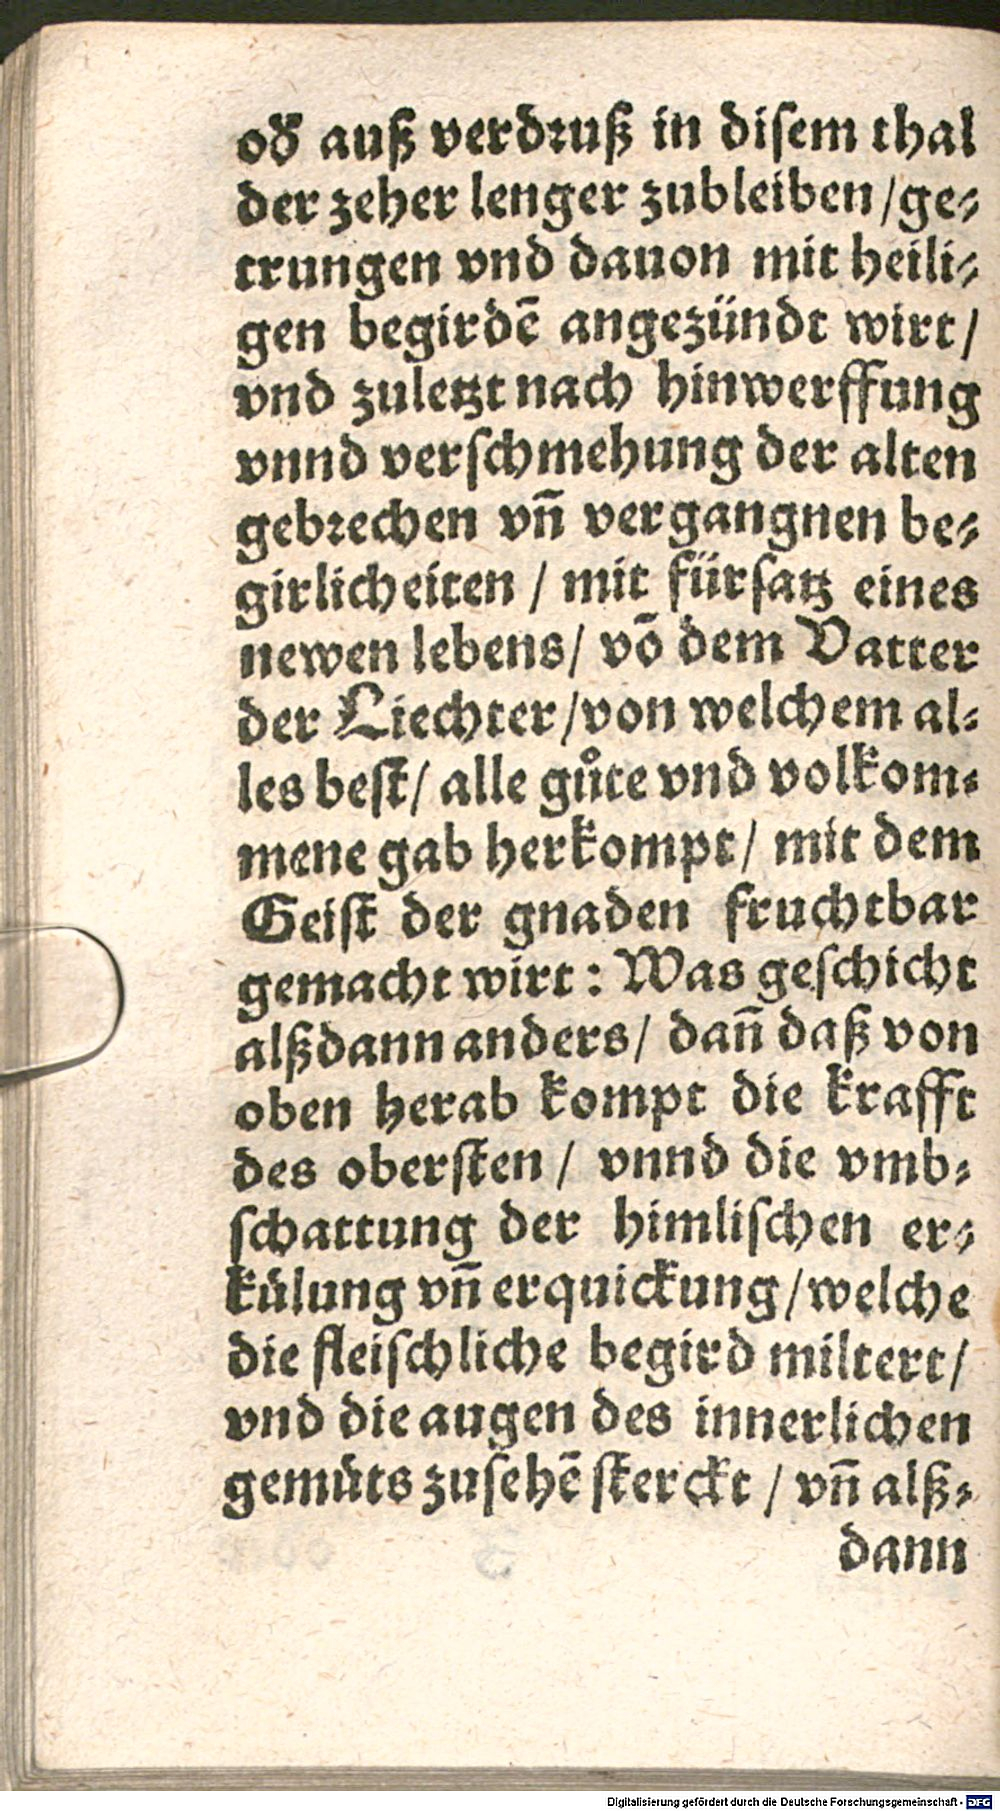 od̕ auß verdꝛuß in diſem thal
der zeher lenger zubleiben /ge⸗
trungen vnd dauon mit heili⸗
gen begirdē angezündt wirt /
vnd zuletzt nach hinwerffung
vnnd verſchmehung der alten
gebꝛechen vñ vergangnen be⸗
girlicheiten / mit fürſatz eines
newen lebens / võ dem Vatter
der Liechter /von welchem al⸗
les beſt / alle gůte vnd volkom⸗
mene gab herkompt / mit dem
Geiſt der gnaden fruchtbar
gemacht wirt : Was geſchicht
alßdann anders / dañ daß von
oben herab kompt die krafft
des oberſten / vnnd die vmb⸗
ſchattung der himliſchen er⸗
külung vñ erquickung /welche
die fleiſchliche begird miltert /
vnd die augen des innerlichen
gemüts zuſehē ſterckt / vñ alß⸗
dann
Digitalisierung gefördert durch die Deutsche Forschungsgemeinschaft - DFG